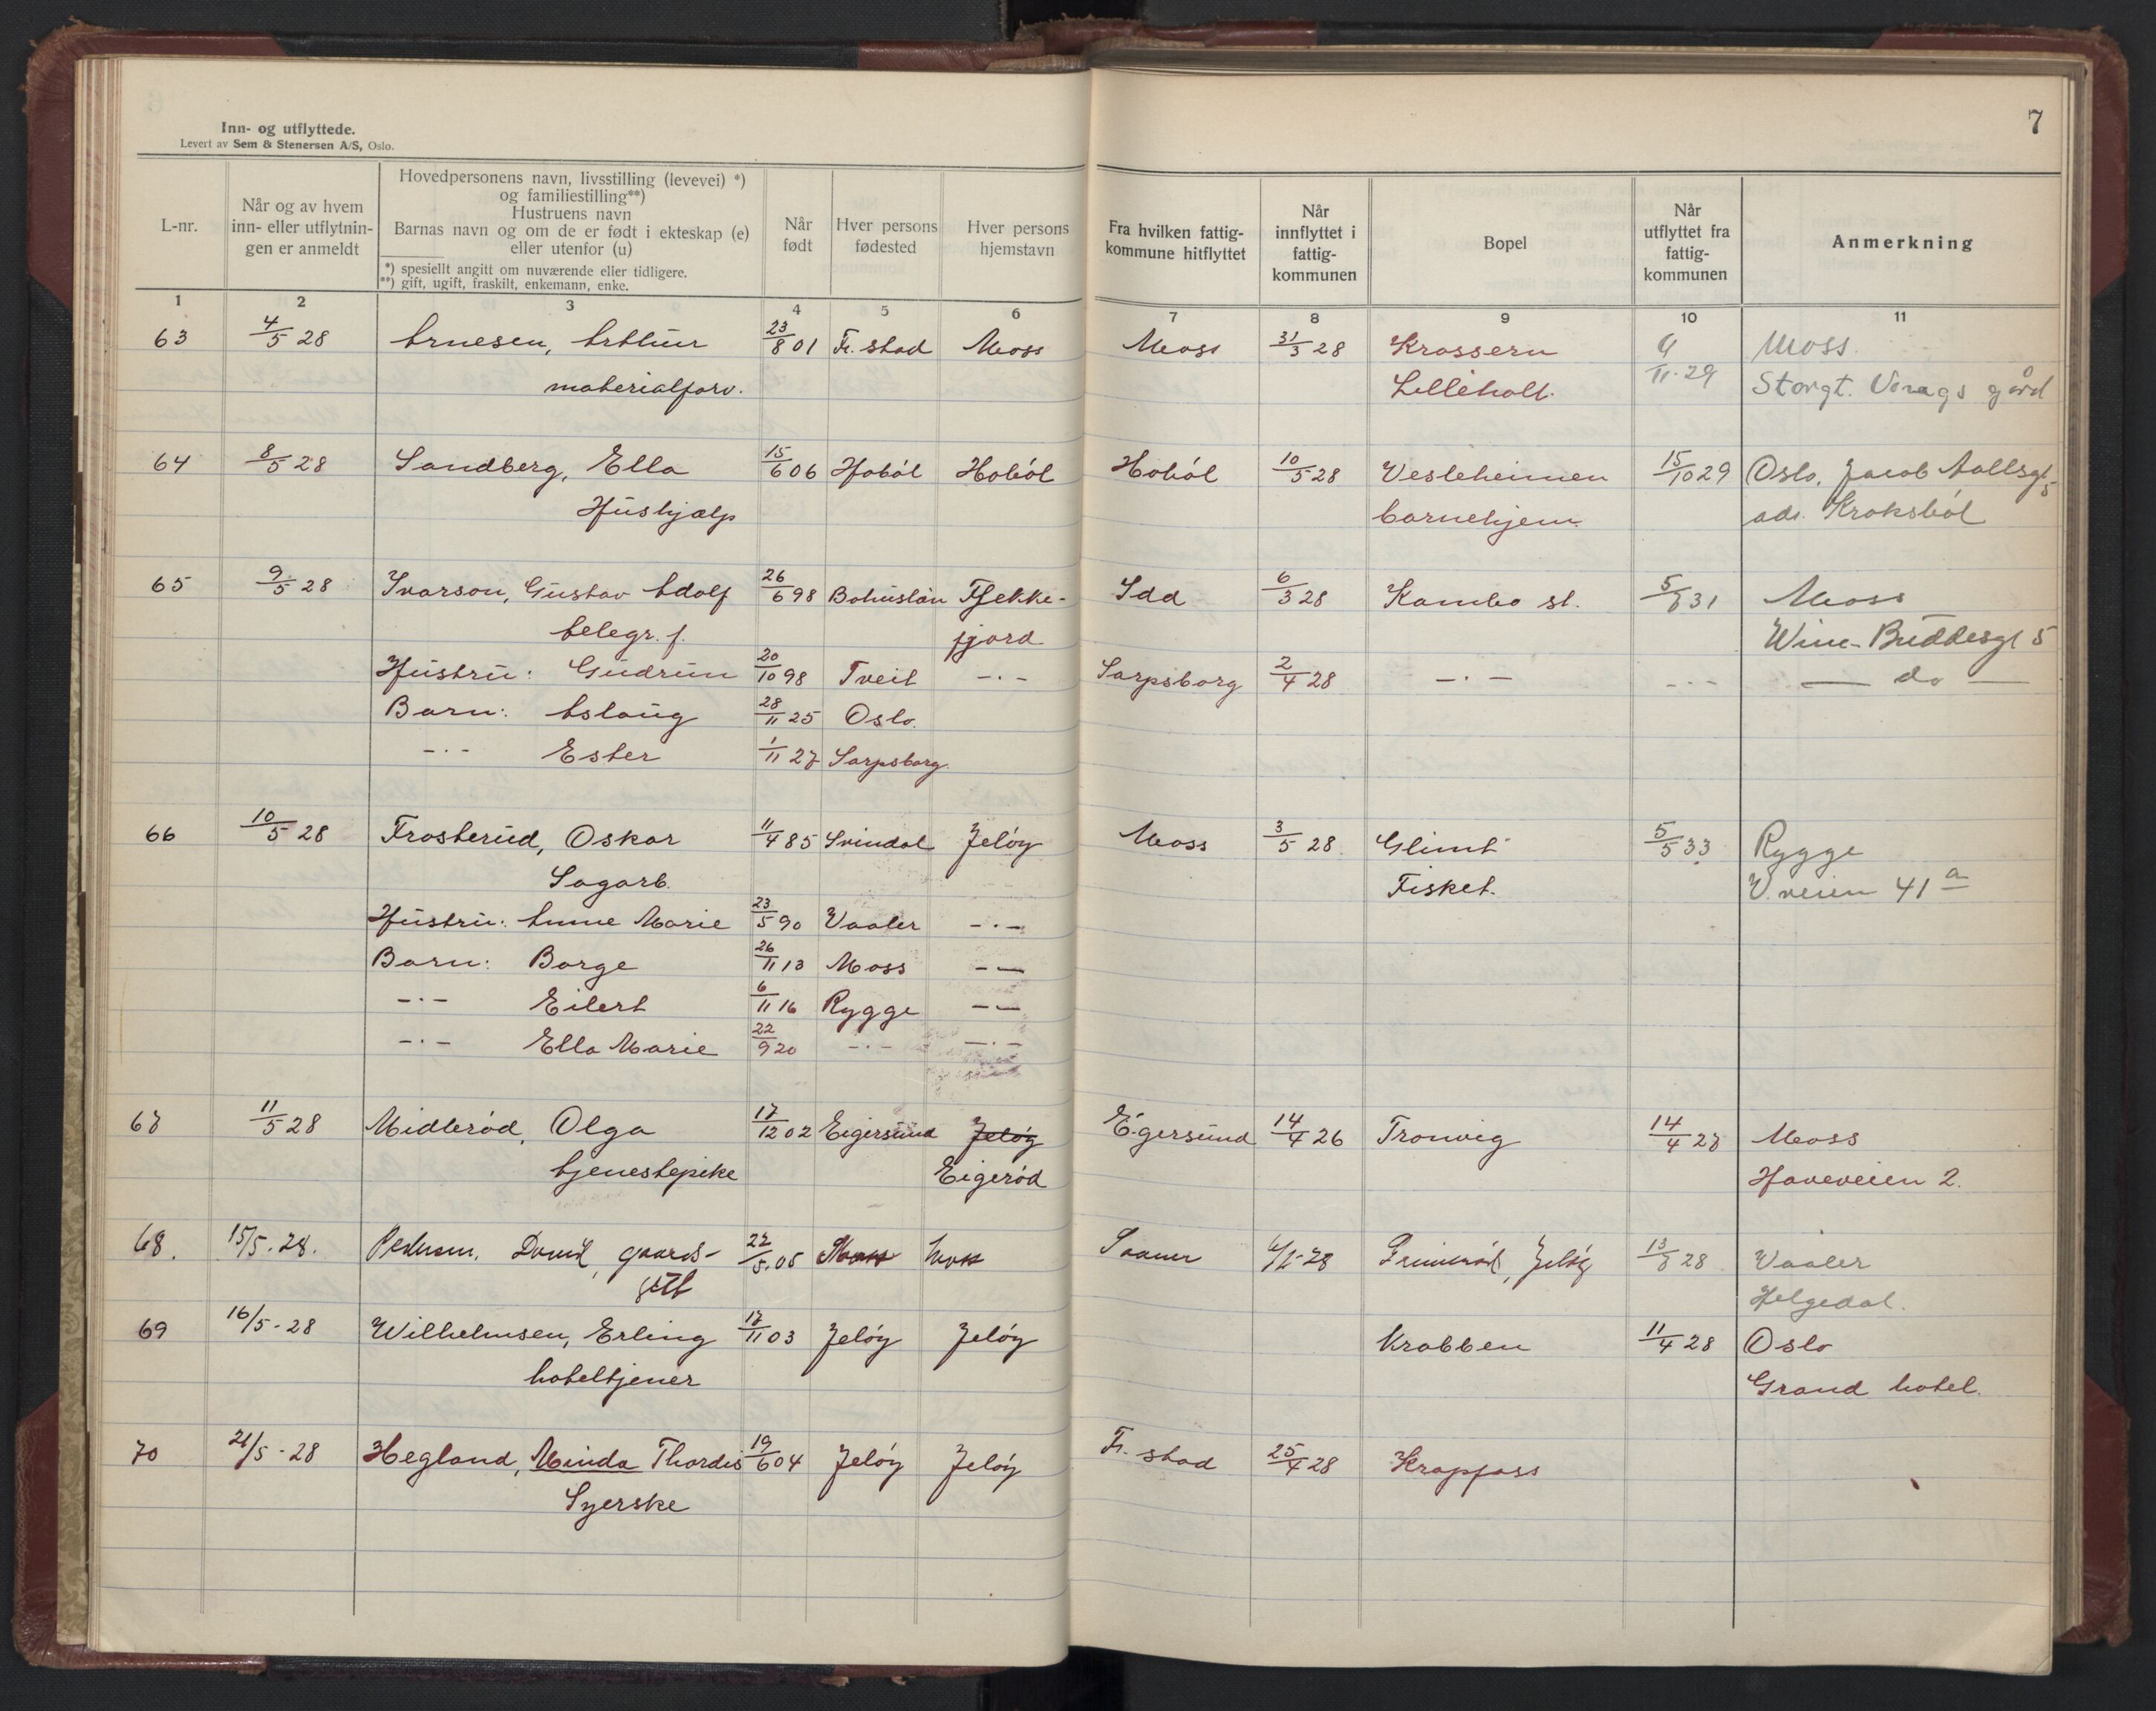 7
Inn- og utflyttede.
Levert av Sem & Stenersen A/S, Oslo.
L-nr.
Når og av hvem inn- eller utflytnin- gen er anmeldt
Hovedpersonens navn, livsstilling (levevei) *)
og familiestilling**)
Hustruens navn
Barnas navn og om de er født i ekteskap (e)
eller utenfor (u)
*) spesiellt angitt om nuværende eller tidligere.
**) gift, ugift, fraskilt, enkemann, enke.
Når født
Hver persons fødested
Hver persons hjemstavn
Fra hvilken fattig- kommune hitflyttet
Når innflyttet i fattig- kommunen
Bopel
Når utflyttet fra fattig- kommunen
Anmerkning
1 2 3 4 5 6 7 8 9 10 11
63 4/5 28 Arnesen, Arthur 23/8 01 Fr. stad Moss Moss 31/3 28 Krossern 9/11-29 Moss
materialforv. Lilleholt. Storgt. gård
64 8/5 28 Sandberg, Ella 15/6 06 Hobøl Hobøl Hobøl 10/5 28 Vesleheimen 15/10 29 Oslo, Jacob Aallsgt 5
Hushjælp barnehjem adr. Kroksbøl
65 9/5 28 Ivarson, Gustav Adolf 26/6 98 Bohuslän Flekke- Idd 6/3 28 Kambo st. 5/8 31 Moss
telegr. f. fjord Wine-Buddesgt 5
Hustru: Gudrun 20/10 98 Tveit -·- Sarpsborg 2/4 28 -·- -·- — do —
Barn: Aslaug 28/11 25 Oslo.
-·- Ester 1/11 27 Sarpsborg.
66 10/5 28 Frosterud, Oskar 11/4 85 Svindal Jeløy Moss 3/5 28 Glimt 5/5 33 Rygge
Sagarb. Fisket. V. veien 41 a
Hustru: Anne Marie 23/5 90 Vaaler -·-
Barn: Borge 26/11 13 Moss -·-
-·- Eilert 6/11 16 Rygge -·-
-·- Ella Marie 22/9 20 -·- -·-
67 11/5 28 Midbrød, Olga 17/12 02 Eigersund Jeløy Eigersund 14/4 26 Tronvig 14/4 27 Moss
tjenestepike Eigerød Haveveien 2.
68. 15/5-28. Pedersen, David, gaards- 22/5-05 Moss Moss Saaner 28 Jeløy 13/8 28 Vaaler
gutt Helgedal.
69 16/5-28 Wilhelmsen, Erling 17/11 03 Jeløy Jeløy Krabben 11/4 28 Oslo
hoteltjener Grand hotel.
70 21/5-28 Hegland, Minda Thordis 19/6 04 Jeløy Jeløy Fr. stad 25/4 28 Krapfoss
Syerske